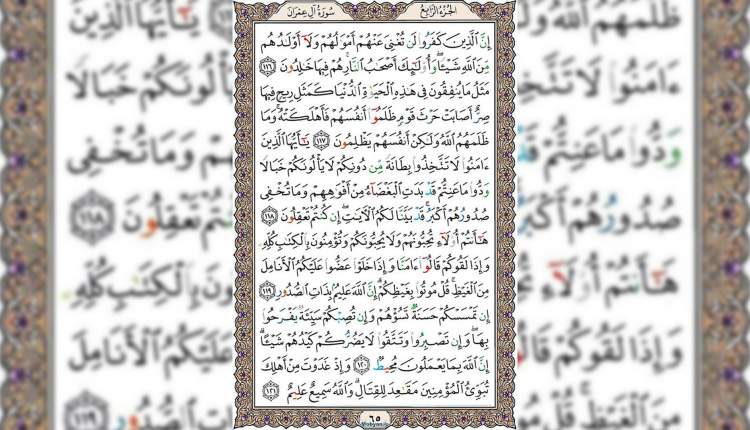 الجُزْءُ الرَّابِعُ
سُورَةُ آلِ عِمْرَانَ
إِنَّ الَّذِينَ كَفَرُوا لَن تُغْنِىَ عَنْهُمْ أَمْوَٰلُهُمْ وَلَآ أَوْلَٰدُهُم
مِّنَ اللَّهِ شَيْئًا ۖ وَأُو۟لَٰٓئِكَ أَصْحَٰبُ النَّارِ ۚ هُمْ فِيهَا خَٰلِدُونَ ١١٦
مَثَلُ مَا يُنفِقُونَ فِى هَٰذِهِ الْحَيَوٰةِ الدُّنْيَا كَمَثَلِ رِيحٍ فِيهَا
صِرٌّ أَصَابَتْ حَرْثَ قَوْمٍ ظَلَمُوٓا۟ أَنفُسَهُمْ فَأَهْلَكَتْهُ ۚ وَمَا
ظَلَمَهُمُ اللَّهُ وَلَٰكِنْ أَنفُسَهُمْ يَظْلِمُونَ ١١٧ يَٰٓأَيُّهَا الَّذِينَ
ءَامَنُوا۟ لَا تَتَّخِذُوا۟ بِطَانَةً مِّن دُونِكُمْ لَا يَأْلُونَكُمْ خَبَالًا
وَدُّوا۟ مَا عَنِتُّمْ قَدْ بَدَتِ الْبَغْضَآءُ مِنْ أَفْوَٰهِهِمْ وَمَا تُخْفِى
صُدُورُهُمْ أَكْبَرُ ۚ قَدْ بَيَّنَّا لَكُمُ الْءَايَٰتِ ۖ إِن كُنتُمْ تَعْقِلُونَ ١١٨
هَٰٓأَنتُمْ أُو۟لَآءِ تُحِبُّونَهُمْ وَلَا يُحِبُّونَكُمْ وَتُؤْمِنُونَ بِالْكِتَٰبِ كُلِّهِ
وَإِذَا لَقُوكُمْ قَالُوٓا۟ ءَامَنَّا وَإِذَا خَلَوْا۟ عَضُّوا۟ عَلَيْكُمُ الْأَنَامِلَ
مِنَ الْغَيْظِ ۚ قُلْ مُوتُوا۟ بِغَيْظِكُمْ ۗ إِنَّ اللَّهَ عَلِيمٌۢ بِذَاتِ الصُّدُورِ ١١٩
إِن تَمْسَسْكُمْ حَسَنَةٌ تَسُؤْهُمْ وَإِن تُصِبْكُمْ سَيِّئَةٌ يَفْرَحُوا۟
بِهَا ۖ وَإِن تَصْبِرُوا۟ وَتَتَّقُوا۟ لَا يَضُرُّكُمْ كَيْدُهُمْ شَيْـًٔا ۗ
إِنَّ اللَّهَ بِمَا يَعْمَلُونَ مُحِيطٌ ١٢٠ وَإِذْ غَدَوْتَ مِنْ أَهْلِكَ
تُبَوِّئُ الْمُؤْمِنِينَ مَقَٰعِدَ لِلْقِتَالِ ۗ وَاللَّهُ سَمِيعٌ عَلِيمٌ ١٢١
٦٥